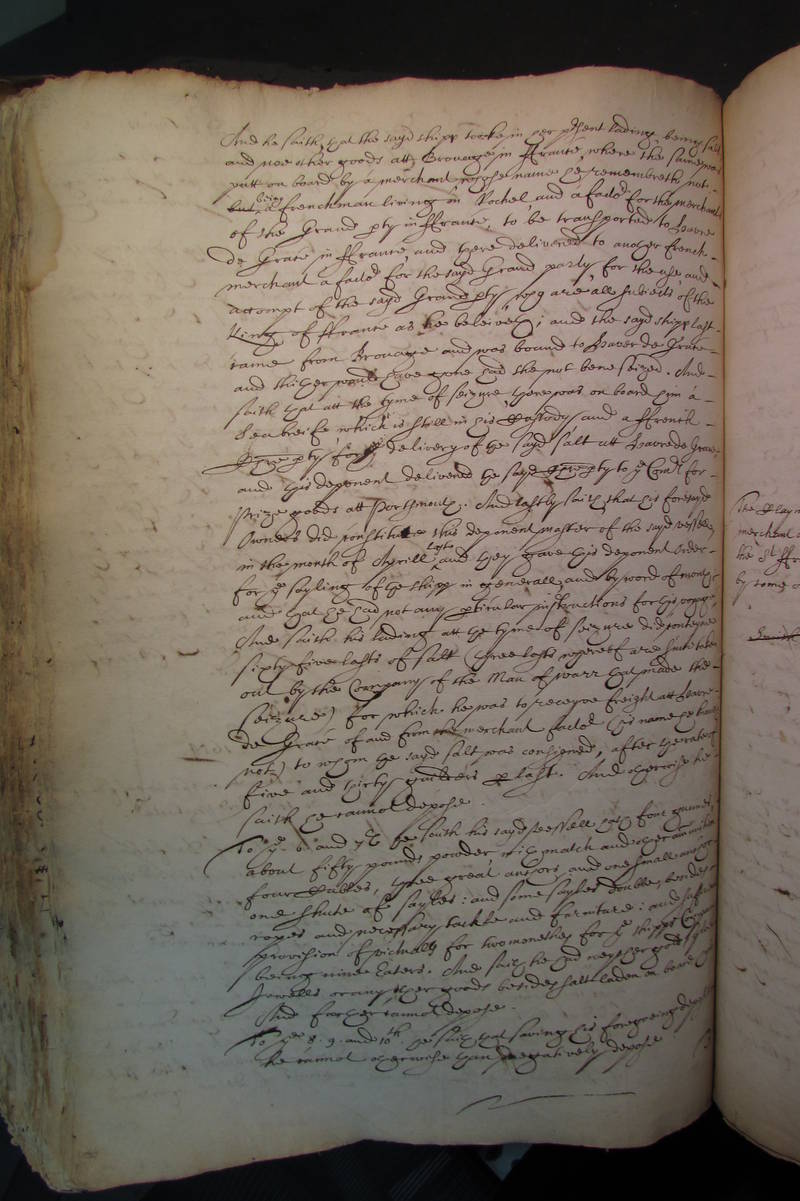 And he saith that the sayd shipp tooke in her p~sent lading being salt
and noe other goods att Brouage in ffrance, where the same was
putt on board by a merchant whose name he remembreth not
but being a frenchman living in Rochel, and a factor for the merchants
of the Grand pty in ffrance, to be transported to Havre
de Grace in ffrance, and there delivered to another french
merchant a factor for the sayd Grand party for the use and
accompt of the sayd Grand pty, who are all subiects of the
King of ffrance as he beleiveth; and the sayd shipp last
came from Brouage and was bound to Haver de Grace
and thither would have gone had she not bene seized. And
saith that att the tyme of seizure there was on board him a
Seabreife which is still in his custody and a ffrench
pty for ye delivery of the sayd salt att Havre de Grace
and this deponent delivered the sayd pty to ye Com~rs for
Prize goods att Portsmouth. And lastly saith that his foresayd
Owners did constitute this deponent master of the sayd vessell
in the month of Aprill last and they gave this deponent order
for ye sayling of the shipp in generall and by word of mouth
and that he had not any p~ticular instructions for his voyage,
And saith his lading att the tyme of seizure did conteyne
sixty five lasts of salt (three lasts whereof are since taken
out by the Company of the Man of warr that made the
seizure) for which he was to receyve freight att Havre
de Grace of and from the merchant factor (his name he knoweth
not) to whom the sayd salt was consigned, after the rate of
five and thirty guilders p last. And otherwise he
saith he cannot depose.
To ye 6. and 7th he saith his sayd vessell hath four gunnes
about fifty pounds powder with match and other ammunition
four Cables, three great anchors, and one small anchor
one shute of sayles: and some sayles double, besides
ropes and necessary tackle and furniture: and sufficient
provision of victualls for two moneths for ye shipps Company
being nine Eaters. And saith he had neyther gold silver
Jewells or any other goods besides salt laden on board
And further cannot depose.
To ye 8. 9. and 10th. he saith that saving his foregoeing deposition
he cannot otherwise than negatively depose
The Clayme
merchant
the St ffr
by some